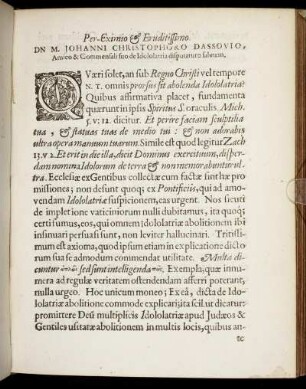 Per-Eximio & Eruditissimo
DN M. JOHANNI CHRISTOPHORO DASSOVIO,
Amico & Commensali suo de Idololatria disputaturo salutem.
QVæri solet, an sub Regno Christi vel tempore
N. T. omnis prorsus sit abolenda Idololatria?
Quibus affirmativa placet, fundamenta
quærunt in ipsis Spiritus S. oraculis. Mich.
5. v: 12. dicitur. Et perire faciam sculptilia
tua, & statuas tuas de medio tui: & non adorabis
ultra opera manuum tuarum Simile est quod legitur Zach
13. v. 2. Et erit in die illa, dicit Dominus exercituum, disper-
dam nomina Idolorum de terra & non memorabuntur ul-
tra. Ecclesiæ ex Gentibus collectæ cum factæ sint hæ pro-
missiones; non desunt quoq; ex Pontificiis, qui ad amo-
vendam Idololatriæ suspicionem, eas urgent. Nos sicuti
de impletione vaticiniorum nulli dubitamus, ita quoq;
certi sumus, eos, qui omnem Idololatriæ abolitionem ibi
insinuari persuasi sunt, non leviter hallucinari. Tritissi-
mum est axioma, quod ipsum etiam in explicatione dicto
rum sua se admodum commendat utilitate. Multa di-
cuntur sed sunt intelligenda Exempla; quæ innu-
mera ad regulæ veritatem ostendendam afferri poterant,
nulla urgeo. Hoc unicum moneo; Ex eâ, dicta de Ido-
lolatriæ abolitione commode explicari; ita scil. ut dicatur:
promittere Deũ multiplicis Idololatriæ apud Judæos &
Gentiles usitatæ abolitionem in multis locis, quibus an-
te